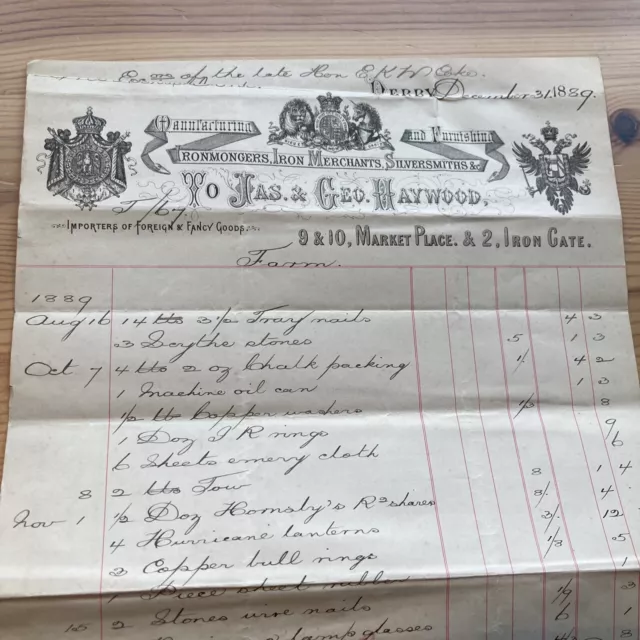 Exors of the late Hon E K W Coke.
DERBY December 31, 1889.
Manufacturing and Furnishing
IRONMONGERS, IRON MERCHANTS, SILVERSMITHS &c
To JAS. & GEO. HAYWOOD,
IMPORTERS OF FOREIGN & FANCY GOODS.
9 & 10, MARKET PLACE. & 2, IRON GATE.
Farm.
1889
Aug 16 14 lbs 3½ Tray nails 4 3
3 Scythe stones .5 1 3
Oct 7 4 lbs 2 oz Chalk packing 1/. 4 2
1 Machine oil can 1 3
½ lb Copper washers 1/3 8
1 Doz I R rings 9
6 Sheets emery cloth 6
8 2 lbs Tow 8 1 4
Nov 1 ½ Doz Hornsby's R2 shares 8/. 4
4 Hurricane lanterns 3/. 12
2 Copper bull rings 1/3
1 Piece sheet rubber
15 2 Stones wire nails
lamp glasses